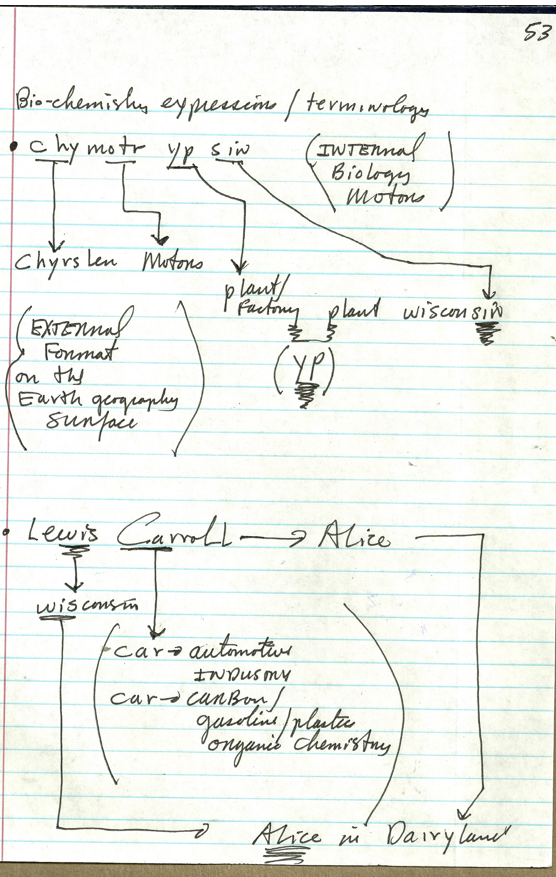 53
Bio-chemistry expressions / terminology
• chymotr yp sin (INTERNAL
Biology
Motors)
Chyrslen Motors
plant/
Factory plant wisconsin
(YP)
(EXTERNAL
Format
on the
Earth geography
Surface)
• Lewis Carroll → Alice
wisconsin
(car → automotive
INDUSTRY
car → carbon/
gasoline/plastic
organic chemistry)
Alice in Dairyland